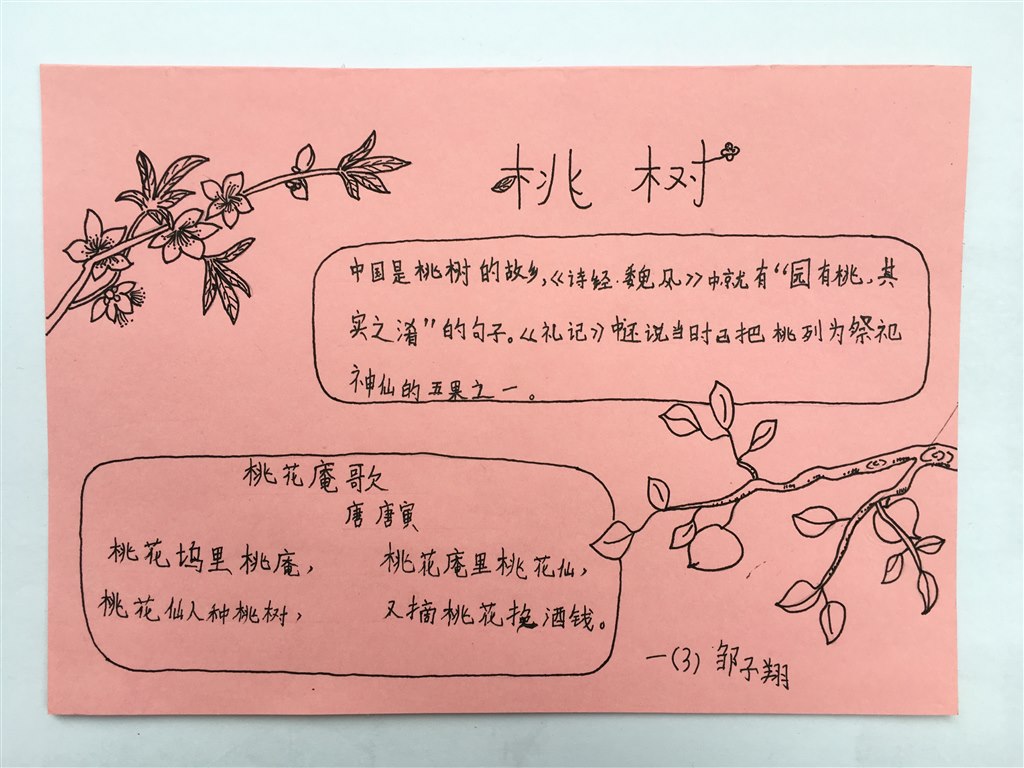 桃树
中国是桃树的故乡,《诗经·魏风》中就有“园有桃,其
实之淆”的句子。《礼记》中还说当时已把桃列为祭祀
神仙的五果之一。
桃花庵歌
唐 唐寅
桃花坞里桃庵, 桃花庵里桃花仙,
桃花仙人种桃树, 又摘桃花换酒钱。
一(3) 邹子翔